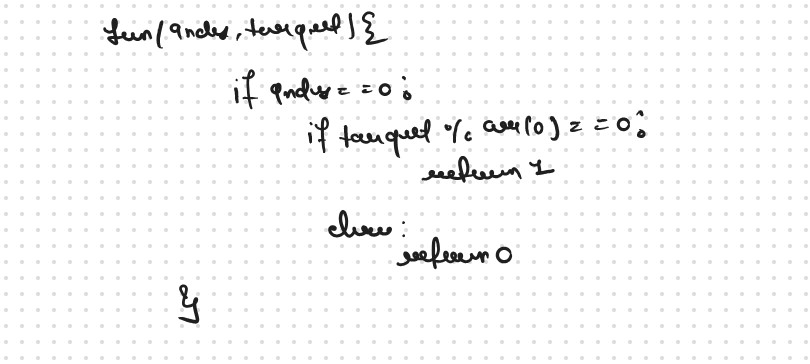 fun(index, target) {
if index == 0 :
if target % arr(0) == 0 :
return 1
else :
return 0
}